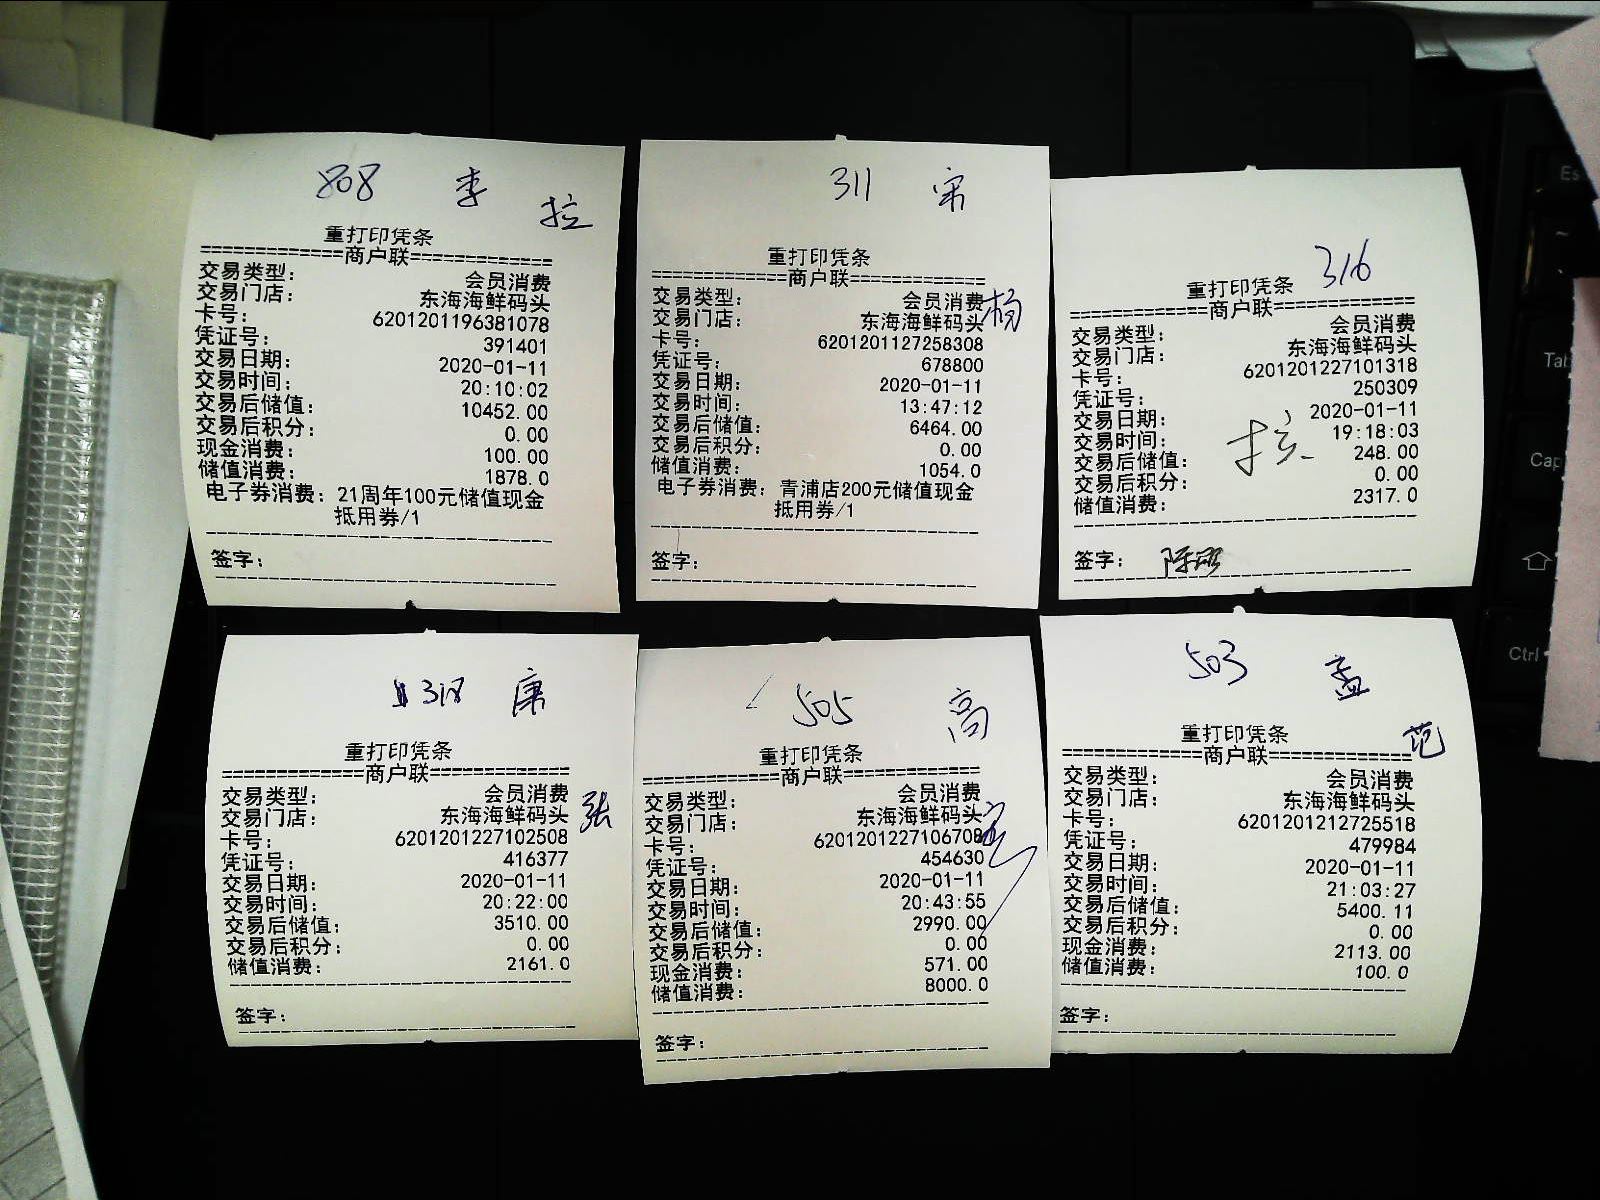 808 李
拉
重打印凭条
=============商户联=============
交易类型: 会员消费
交易门店: 东海海鲜码头
卡号: 6201201196381078
凭证号: 391401
交易日期: 2020-01-11
交易时间: 20:10:02
交易后储值: 10452.00
交易后积分: 0.00
现金消费: 100.00
储值消费: 1878.0
电子券消费: 21周年100元储值现金
抵用券/1
签字:
311 宋
重打印凭条
=============商户联=============
交易类型: 会员消费 杨
交易门店: 东海海鲜码头
卡号: 6201201127258308
凭证号: 678800
交易日期: 2020-01-11
交易时间: 13:47:12
交易后储值: 6464.00
交易后积分: 0.00
储值消费: 1054.0
电子券消费: 青浦店200元储值现金
抵用券/1
签字:
316
重打印凭条
=============商户联=============
交易类型: 会员消费
交易门店: 东海海鲜码头
卡号: 6201201227101318
凭证号: 250309
交易日期: 2020-01-11
交易时间: 19:18:03
交易后储值: 248.00
交易后积分: 0.00
储值消费: 2317.0
签字:
318 康
重打印凭条
=============商户联=============
交易类型: 会员消费
交易门店: 东海海鲜码头 张
卡号: 6201201227102508
凭证号: 416377
交易日期: 2020-01-11
交易时间: 20:22:00
交易后储值: 3510.00
交易后积分: 0.00
储值消费: 2161.0
签字:
505 高
重打印凭条
=============商户联=============
交易类型: 会员消费
交易门店: 东海海鲜码头
卡号: 6201201227106708
凭证号: 454630
交易日期: 2020-01-11
交易时间: 20:43:55
交易后储值: 2990.00
交易后积分: 0.00
现金消费: 571.00
储值消费: 8000.0
签字:
503 孟
范
重打印凭条
=============商户联=============
交易类型: 会员消费
交易门店: 东海海鲜码头
卡号: 6201201212725518
凭证号: 479984
交易日期: 2020-01-11
交易时间: 21:03:27
交易后储值: 5400.11
交易后积分: 0.00
现金消费: 2113.00
储值消费: 100.0
签字:
Es
~
Tab
Cap
Ctrl